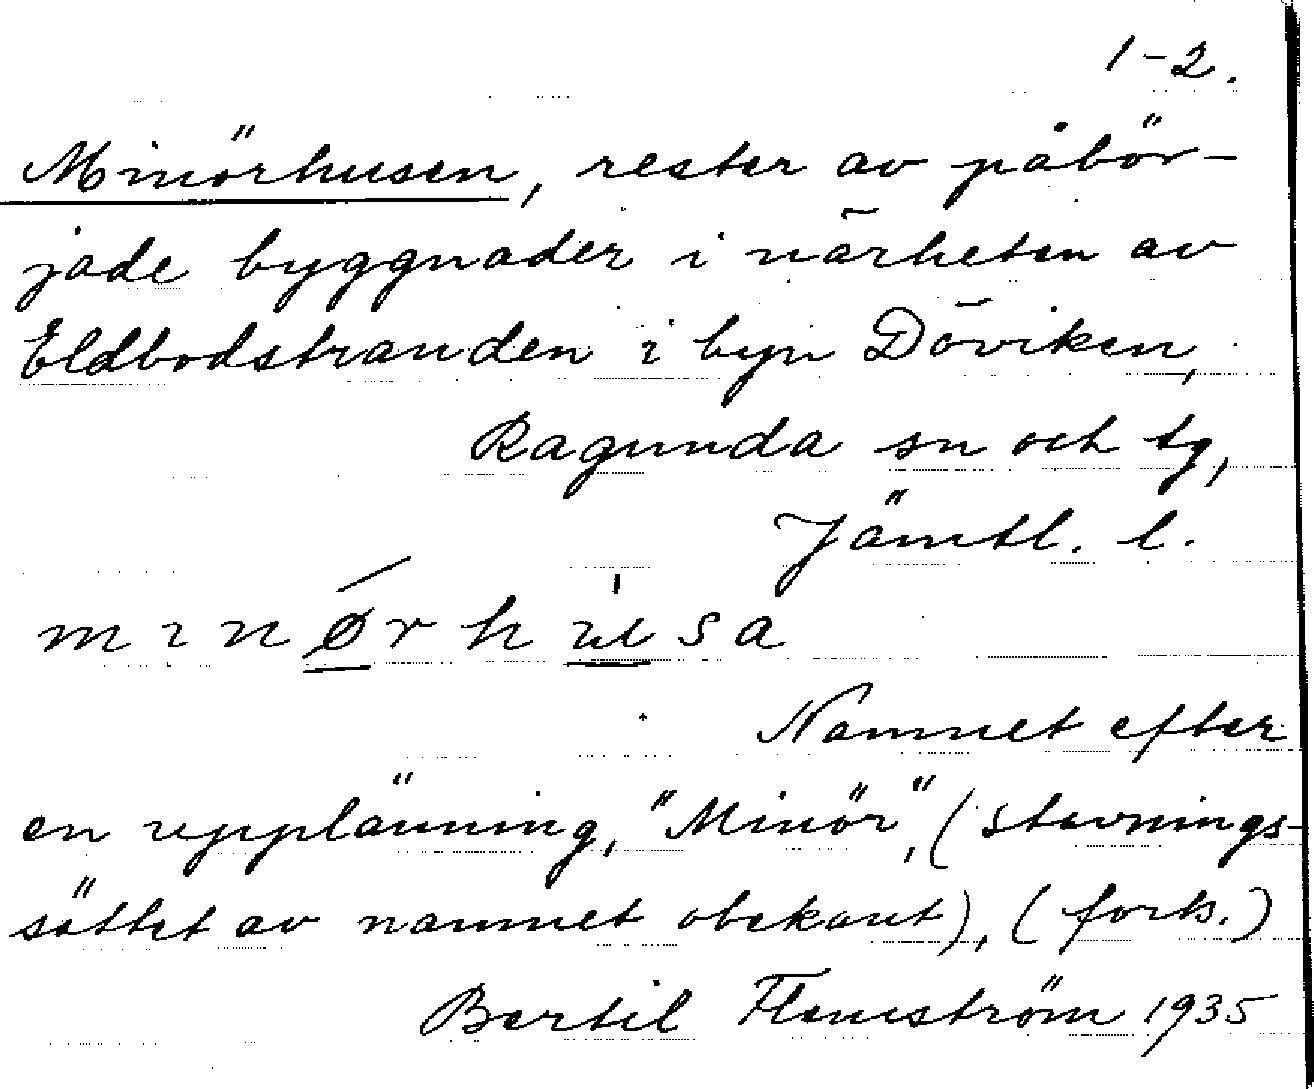 1-2.
Minörhusen, rester av påbör-
jade byggnader i närheten av
Eldbodstranden i byn Döviken,
Ragunda sn och tg,
Jämtl. l.
mɩnǿrhúsa
Namnet efter
en upplänning, "Minör", (stavnings-
sättet av namnet obekant), (forts.)
Bertil Flemström 1935